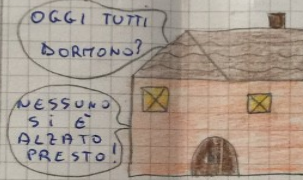 OGGI TUTTI
DORMONO?
NESSUNO
SI È
ALZATO
PRESTO!